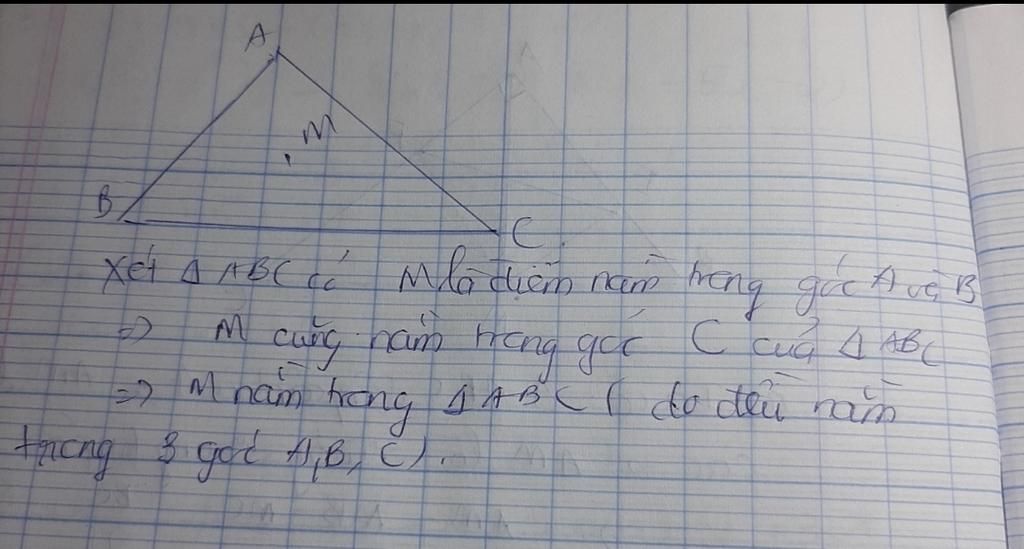 A
M
B
C
Xét Δ ABC có M là điểm nằm trong góc A và B
=> M cũng nằm trong góc C của Δ ABC
=> M nằm trong Δ ABC ( do đều nằm
trong 3 góc A, B, C ).